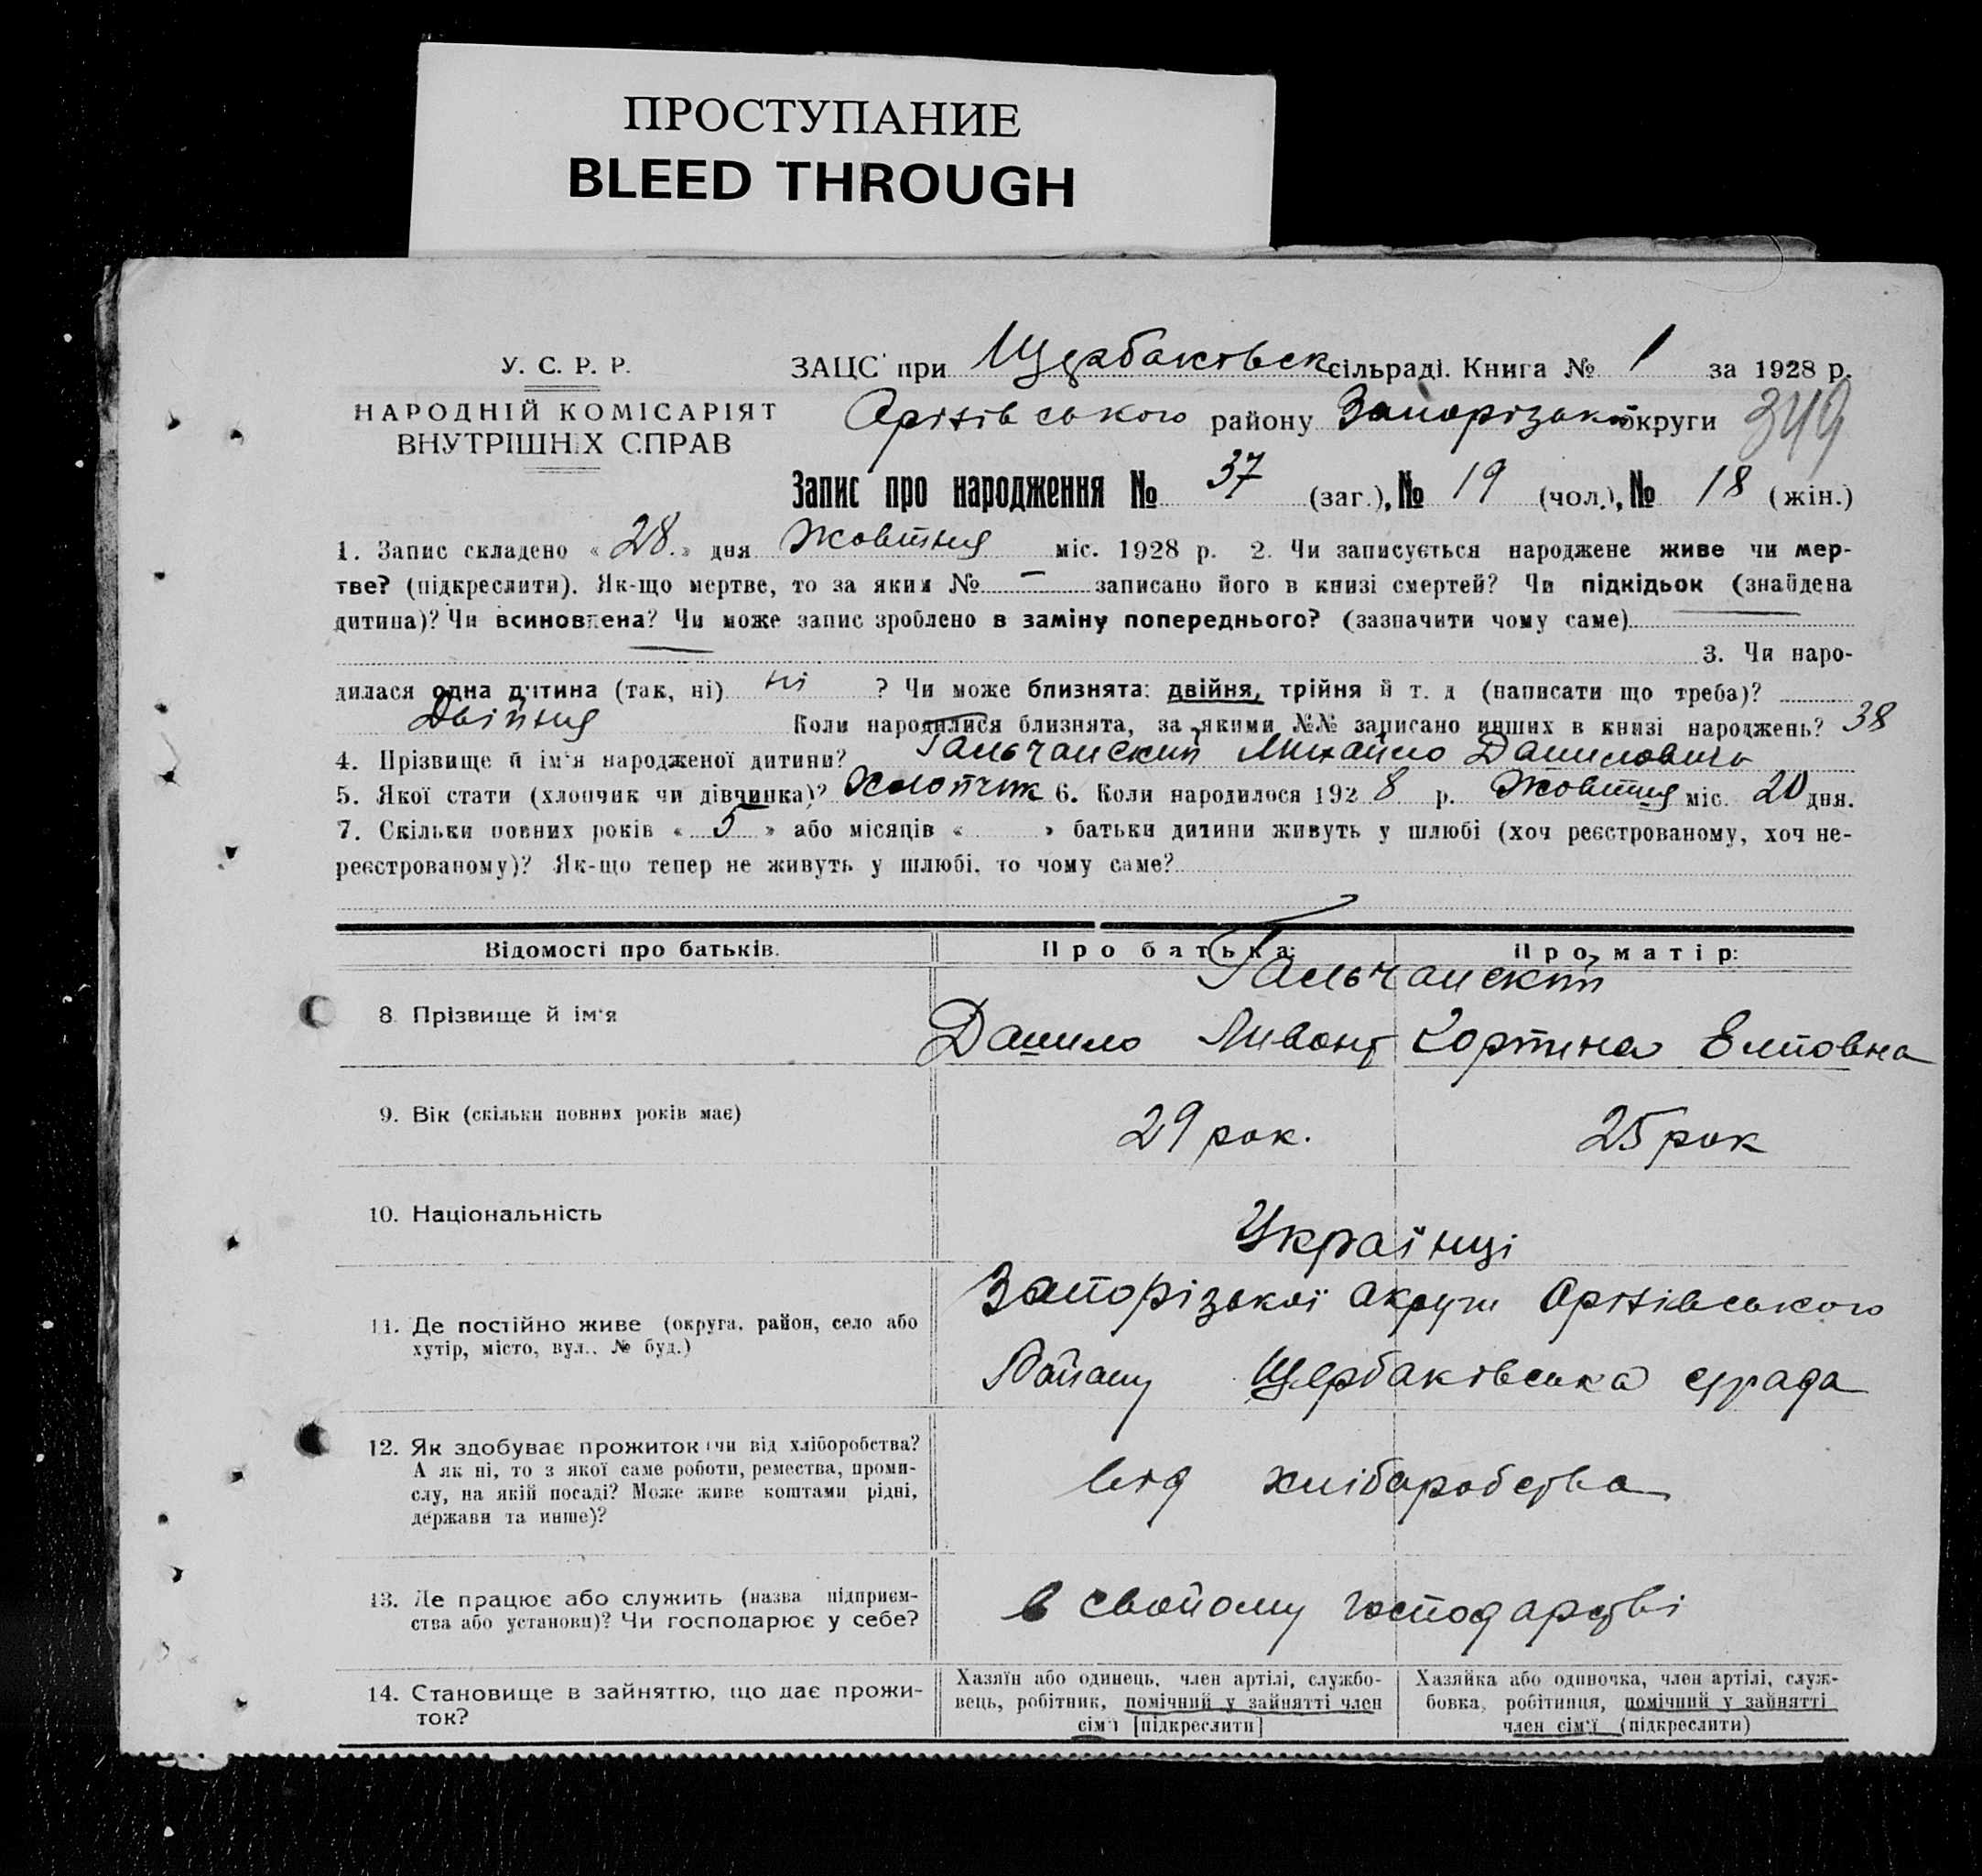 ПРОСТУПАНИЕ
BLEED THROUGH
У. С. Р. Р.
НАРОДНІЙ КОМІСАРІЯТ
ВНУТРІШНІХ СПРАВ
ЗАЦС при Щербаковськ сільраді. Книга № 1 за 1928 р.
Оріхівського району Запорізької округи 349
Запис про народження № 37 (заг.), № 19 (чол.), № 18 (жін.)
1. Запис складено « 28. » дня Жовтня міс. 1928 р. 2. Чи записується народжене живе чи мер-
тве? (підкреслити). Як-що мертве, то за яким № — записано його в книзі смертей? Чи підкідьок (знайдена
дитина)? Чи всиновлена? Чи може запис зроблено в заміну попереднього? (зазначити чому саме)
3. Чи наро-
дилася одна дитина (так, ні) ні ? Чи може близнята: двійня, трійня й т. д (написати що треба)?
Двійня Коли народилися близнята, за якими №№ записано инших в книзі народжень? 38
4. Прізвище й ім'я народженої дитини? Гальчанский Михайло Данилович
5. Якої стати (хлопчик чи дівчинка)? Хлопчик 6. Коли народилося 1928 р. Жовтня міс. 20 дня.
7. Скільки повних років « 5 » або місяців « » батьки дитини живуть у шлюбі (хоч реєстрованому, хоч не-
реєстрованому)? Як-що тепер не живуть у шлюбі, то чому саме?
Відомості про батьків. Про батька: Про матір:
8. Прізвище й ім'я
Гальчанский
Данило
9. Вік (скільки повних років має) 29 рок. 25 рок
10. Національність Українці
11. Де постійно живе (округа, район, село або
хутір, місто, вул.. № буд.)
Запорізької округи Оріхівського
Району Щербаківська с/рада
12. Як здобуває прожиток (чи від хліборобства?
А як ні, то з якої саме роботи, ремества, проми-
слу, на якій посаді? Може живе коштами рідні,
держави та инше)?
від хліборобства
13. Де працює або служить (назва підприєм-
ства або установи)? Чи господарює у себе?
в свойому господарстві
14. Становище в зайняттю, що дає прожи-
ток?
Хазяїн або одинець, член артілі, службо-
вець, робітник, помічний у зайнятті член
сім'ї [підкреслити]
Хазяйка або одиночка, член артілі, служ-
бовка, робітниця, помічний у зайнятті
член сім'ї (підкреслити)